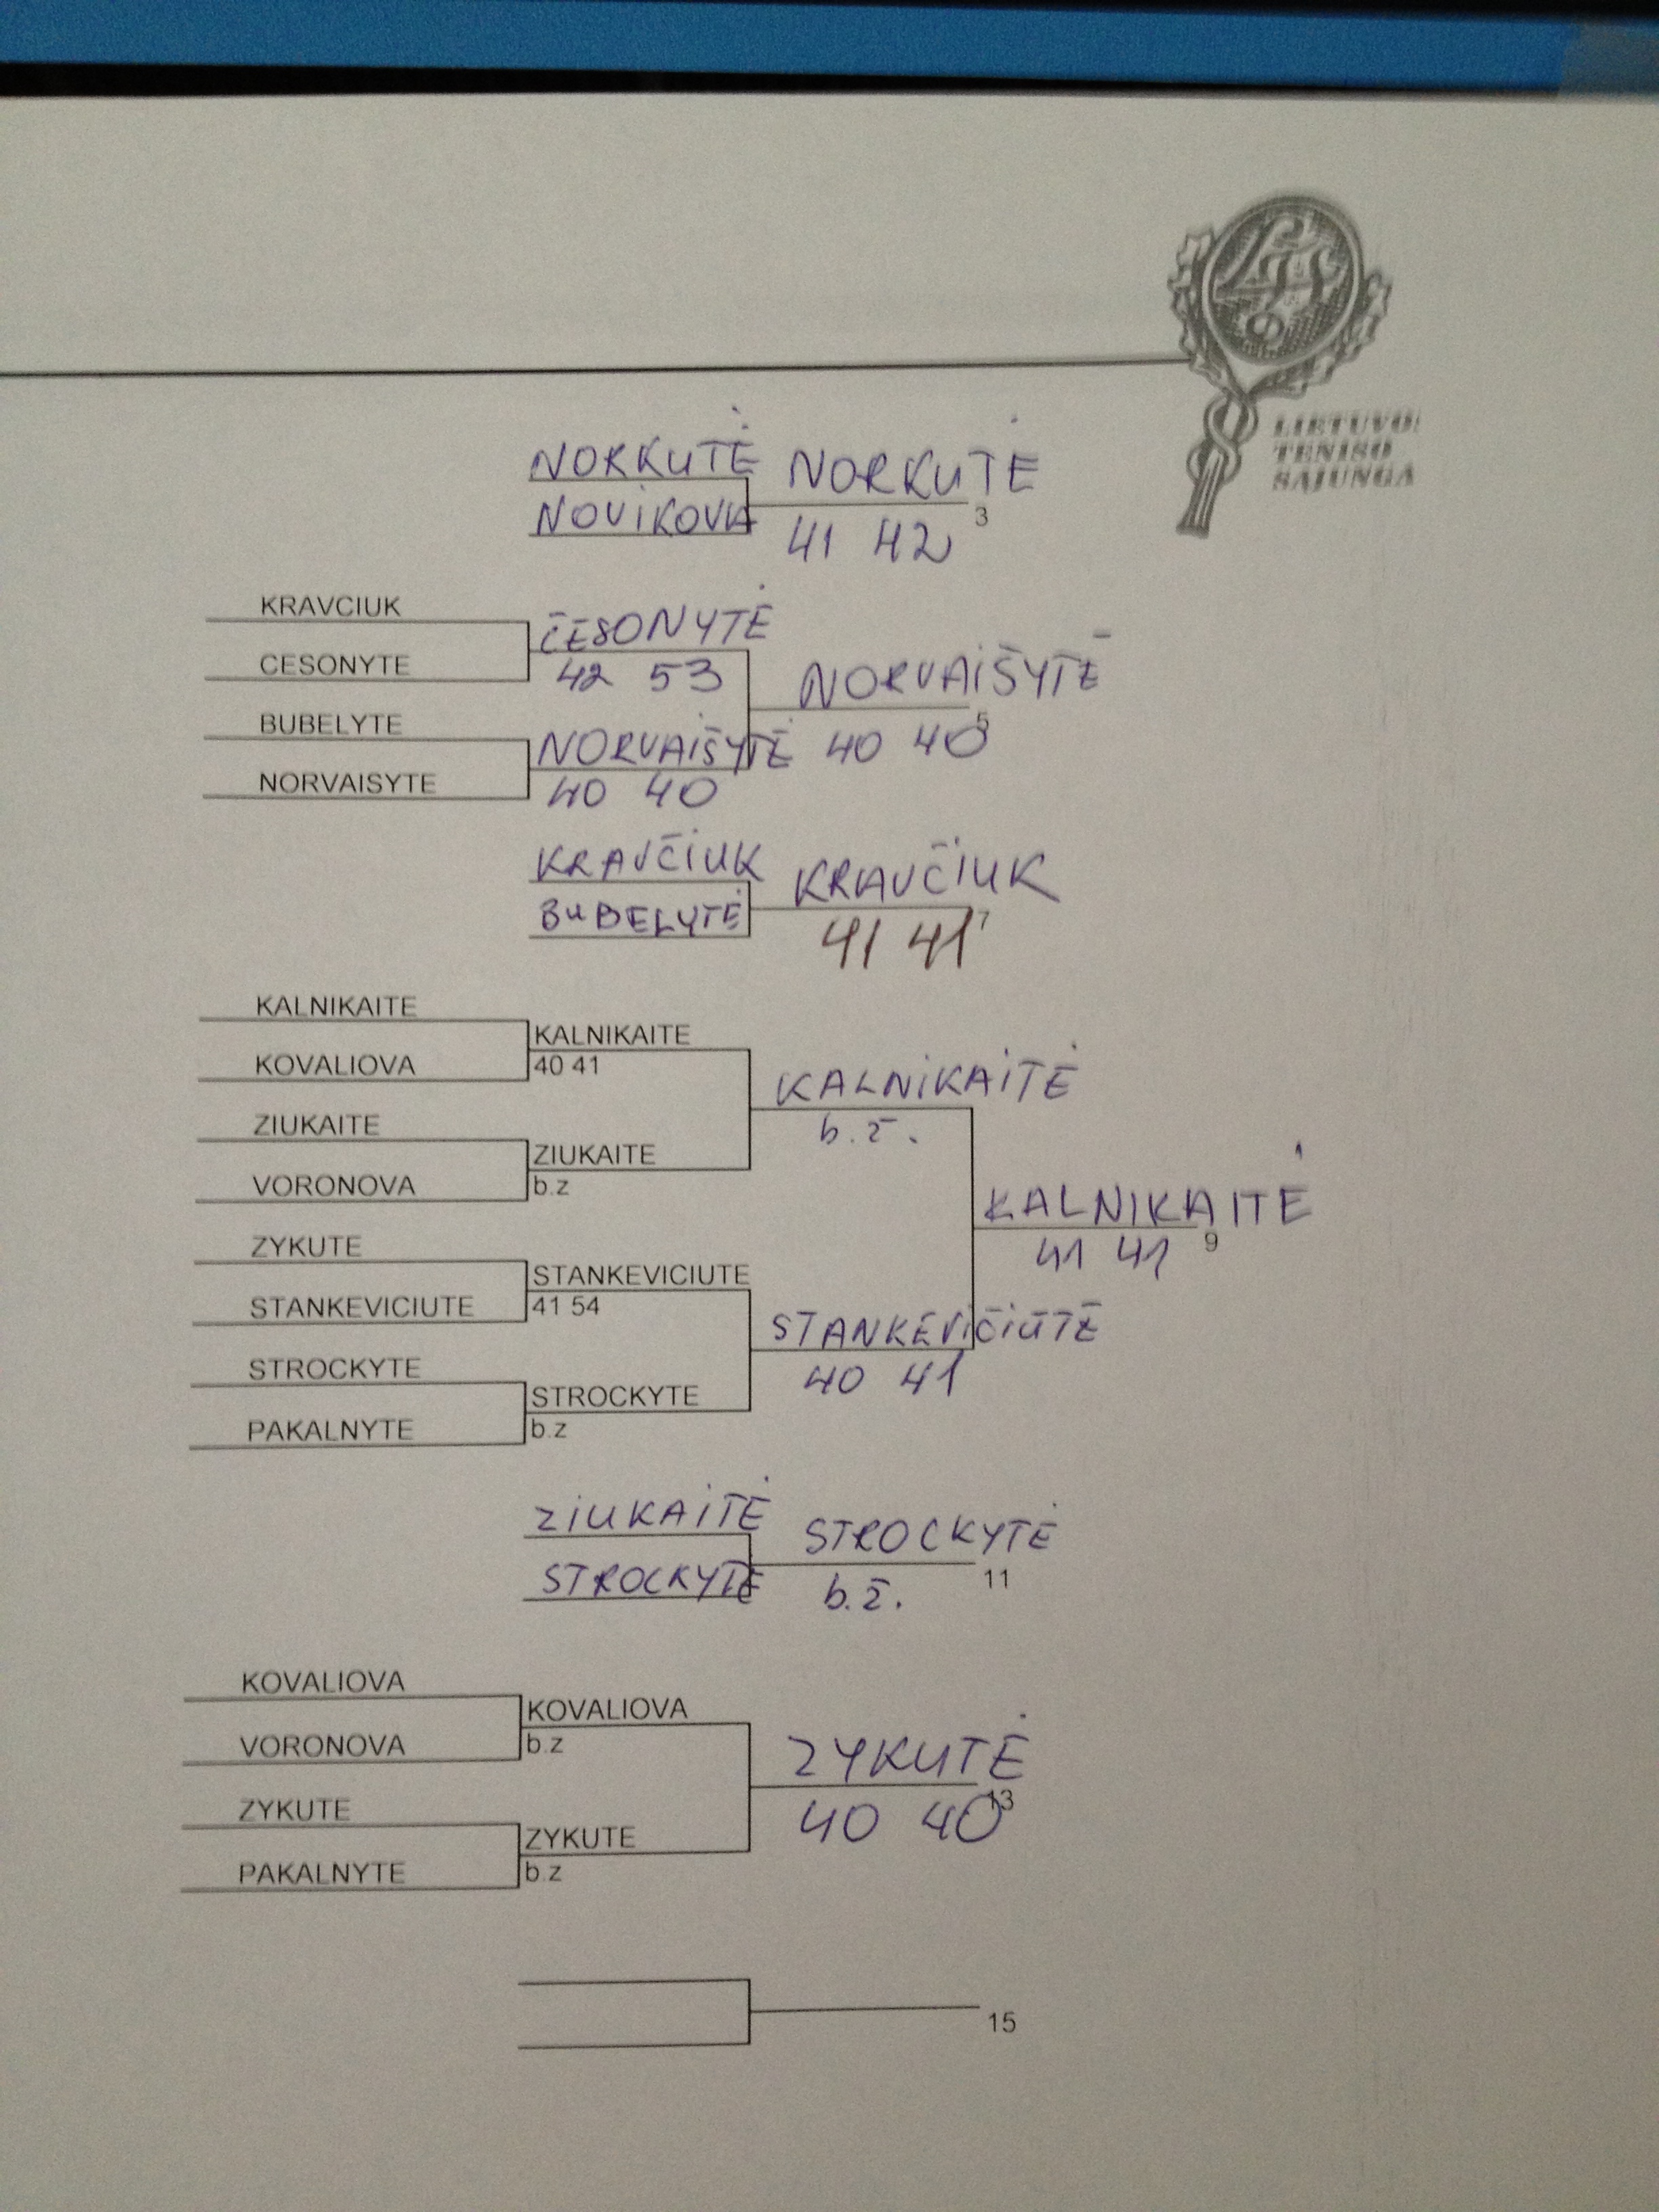 LTS
LIETUVOS
TENISO
SĄJUNGA
NORKUTĖ
NORKUTĖ
NOVIKOVA
3
41 42
KRAVCIUK
ČESONYTĖ
CESONYTE
42 53
NORVAIŠYTĖ
5
BUBELYTE
NORVAIŠYTĖ
40 40
NORVAISYTE
40 40
KRAVČIUK
KRAVČIUK
BUBELYTĖ
7
41 41
KALNIKAITE
KALNIKAITE
KOVALIOVA
40 41
KALNIKAITĖ
b.ž.
ZIUKAITE
ZIUKAITE
VORONOVA
b.z
KALNIKAITĖ
9
41 41
ZYKUTE
STANKEVICIUTE
STANKEVICIUTE
41 54
STANKEVIČIŪTĖ
40 41
STROCKYTE
STROCKYTE
PAKALNYTE
b.z
ZIUKAITĖ
STROCKYTĖ
STROCKYTĖ
11
b.ž.
KOVALIOVA
KOVALIOVA
VORONOVA
b.z
ZYKUTĖ
13
40 40
ZYKUTE
ZYKUTE
PAKALNYTE
b.z
15